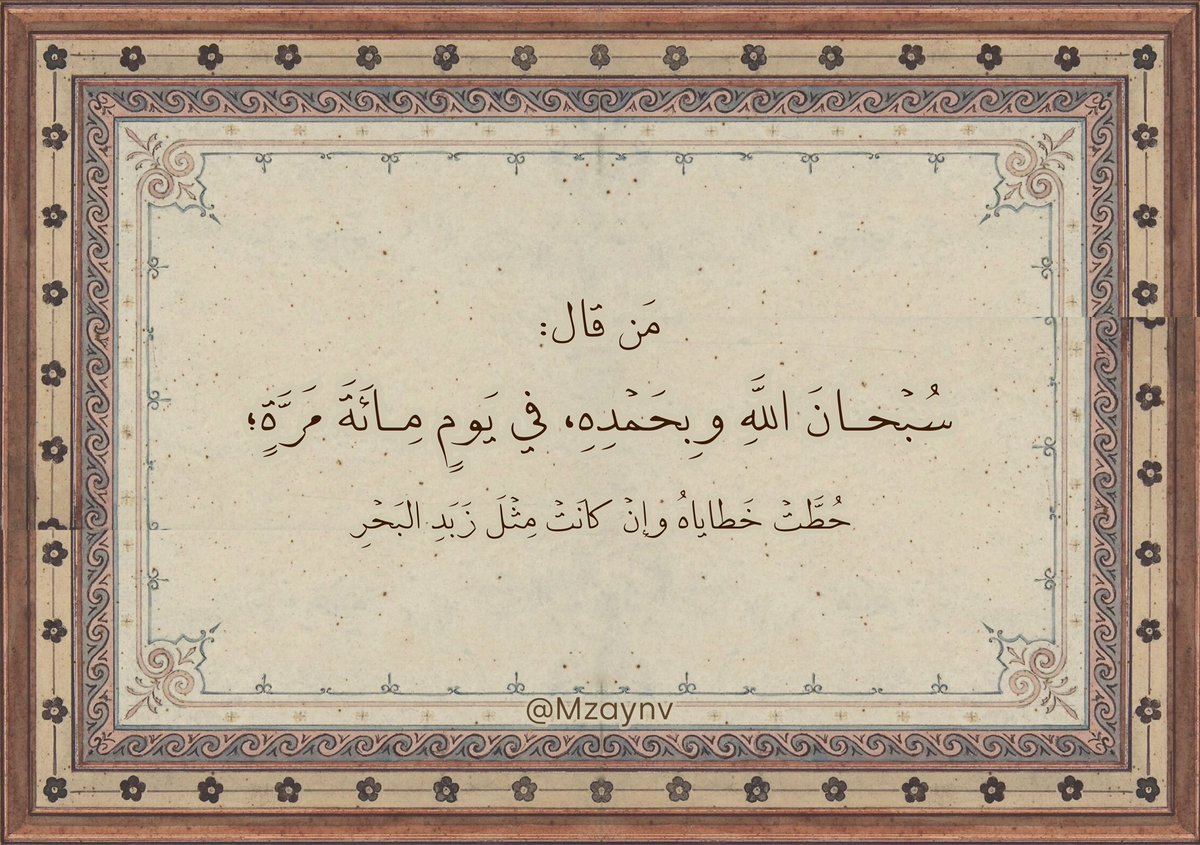 مَن قال:
سُبْحـانَ اللَّهِ وبِحَمْدِهِ، في يَومٍ مِـائَةَ مَرَّةٍ؛
حُطَّتْ خَطاياهُ وإنْ كانَتْ مِثْلَ زَبَدِ البَحْرِ
@Mzaynv